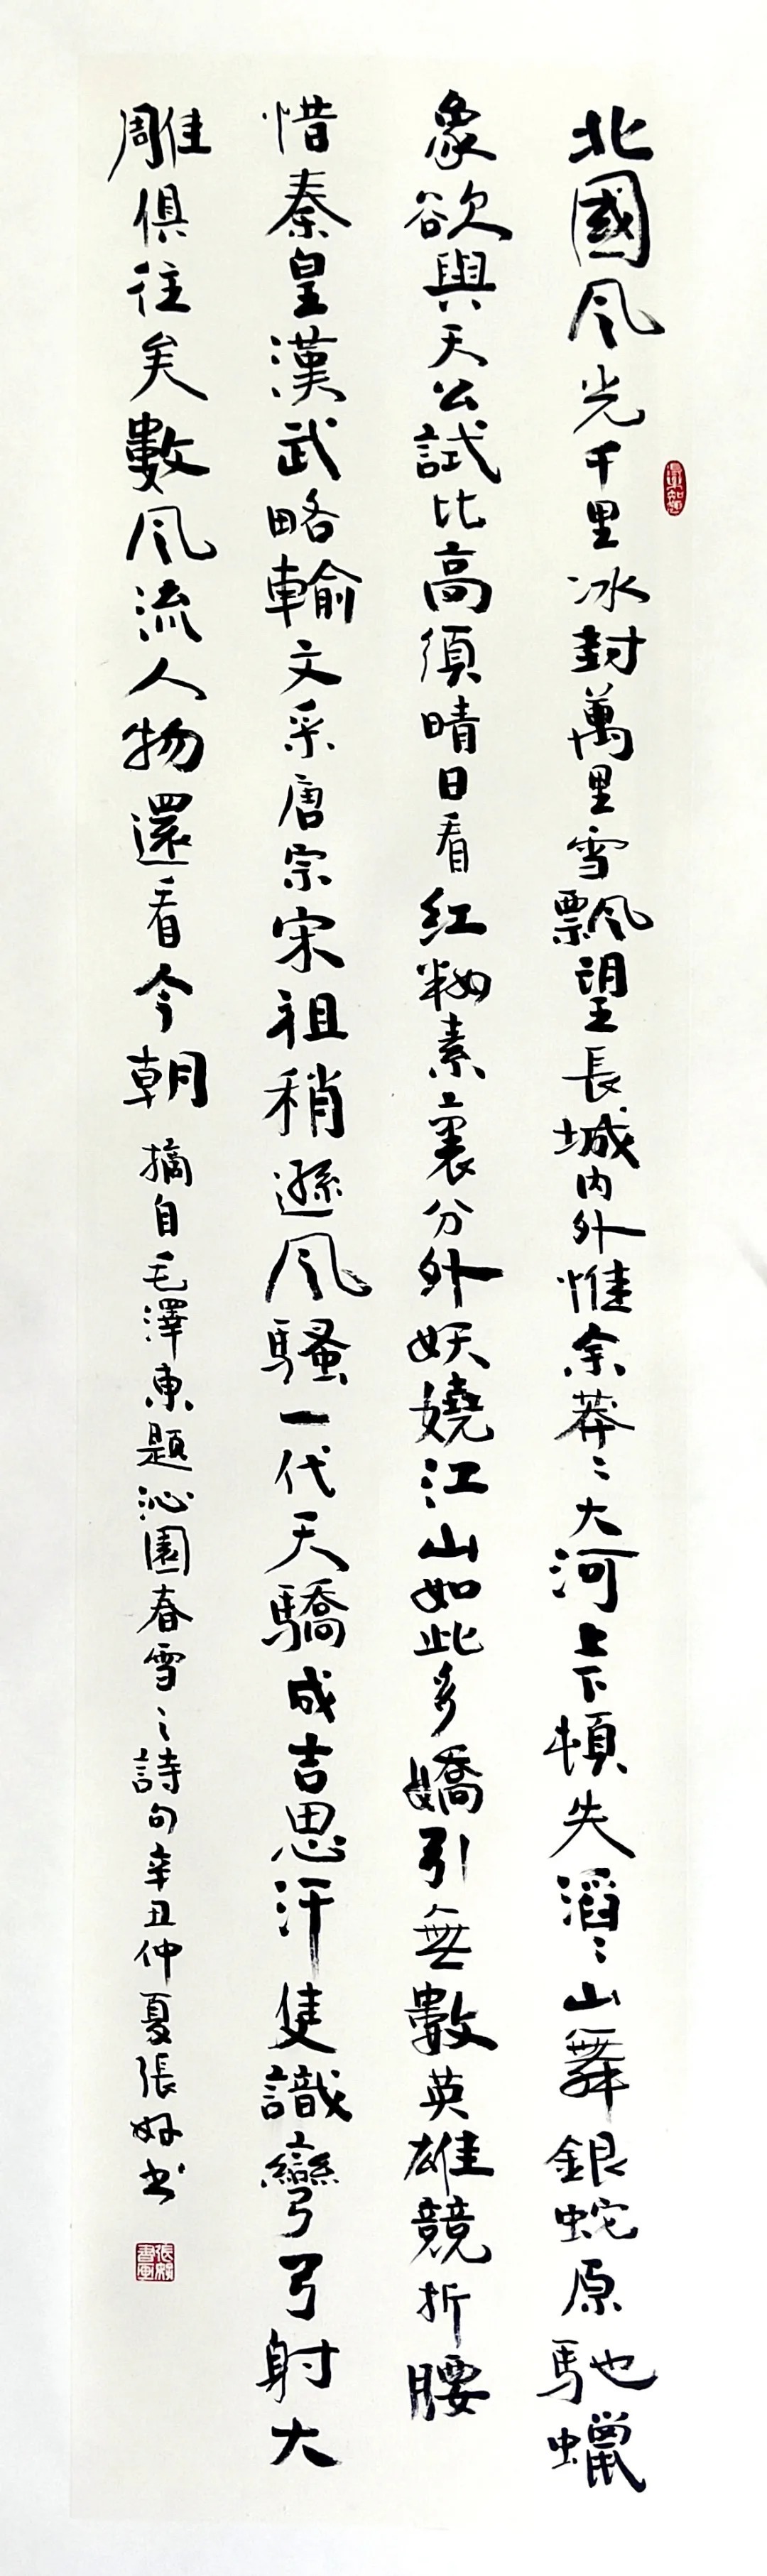 北國风光千里冰封萬里雪飄望長城内外惟余莽〻大河上下頓失滔〻山舞銀蛇原馳蠟
象欲與天公試比高須晴日看红粧素裹分外妖嬈江山如此多嬌引無數英雄競折腰
惜秦皇漢武略輸文采唐宗宋祖稍遜风騷一代天驕成吉思汗隻識彎弓射大
雕俱往矣數风流人物還看今朝 摘自毛澤東題沁園春雪之詩句辛丑仲夏張好书